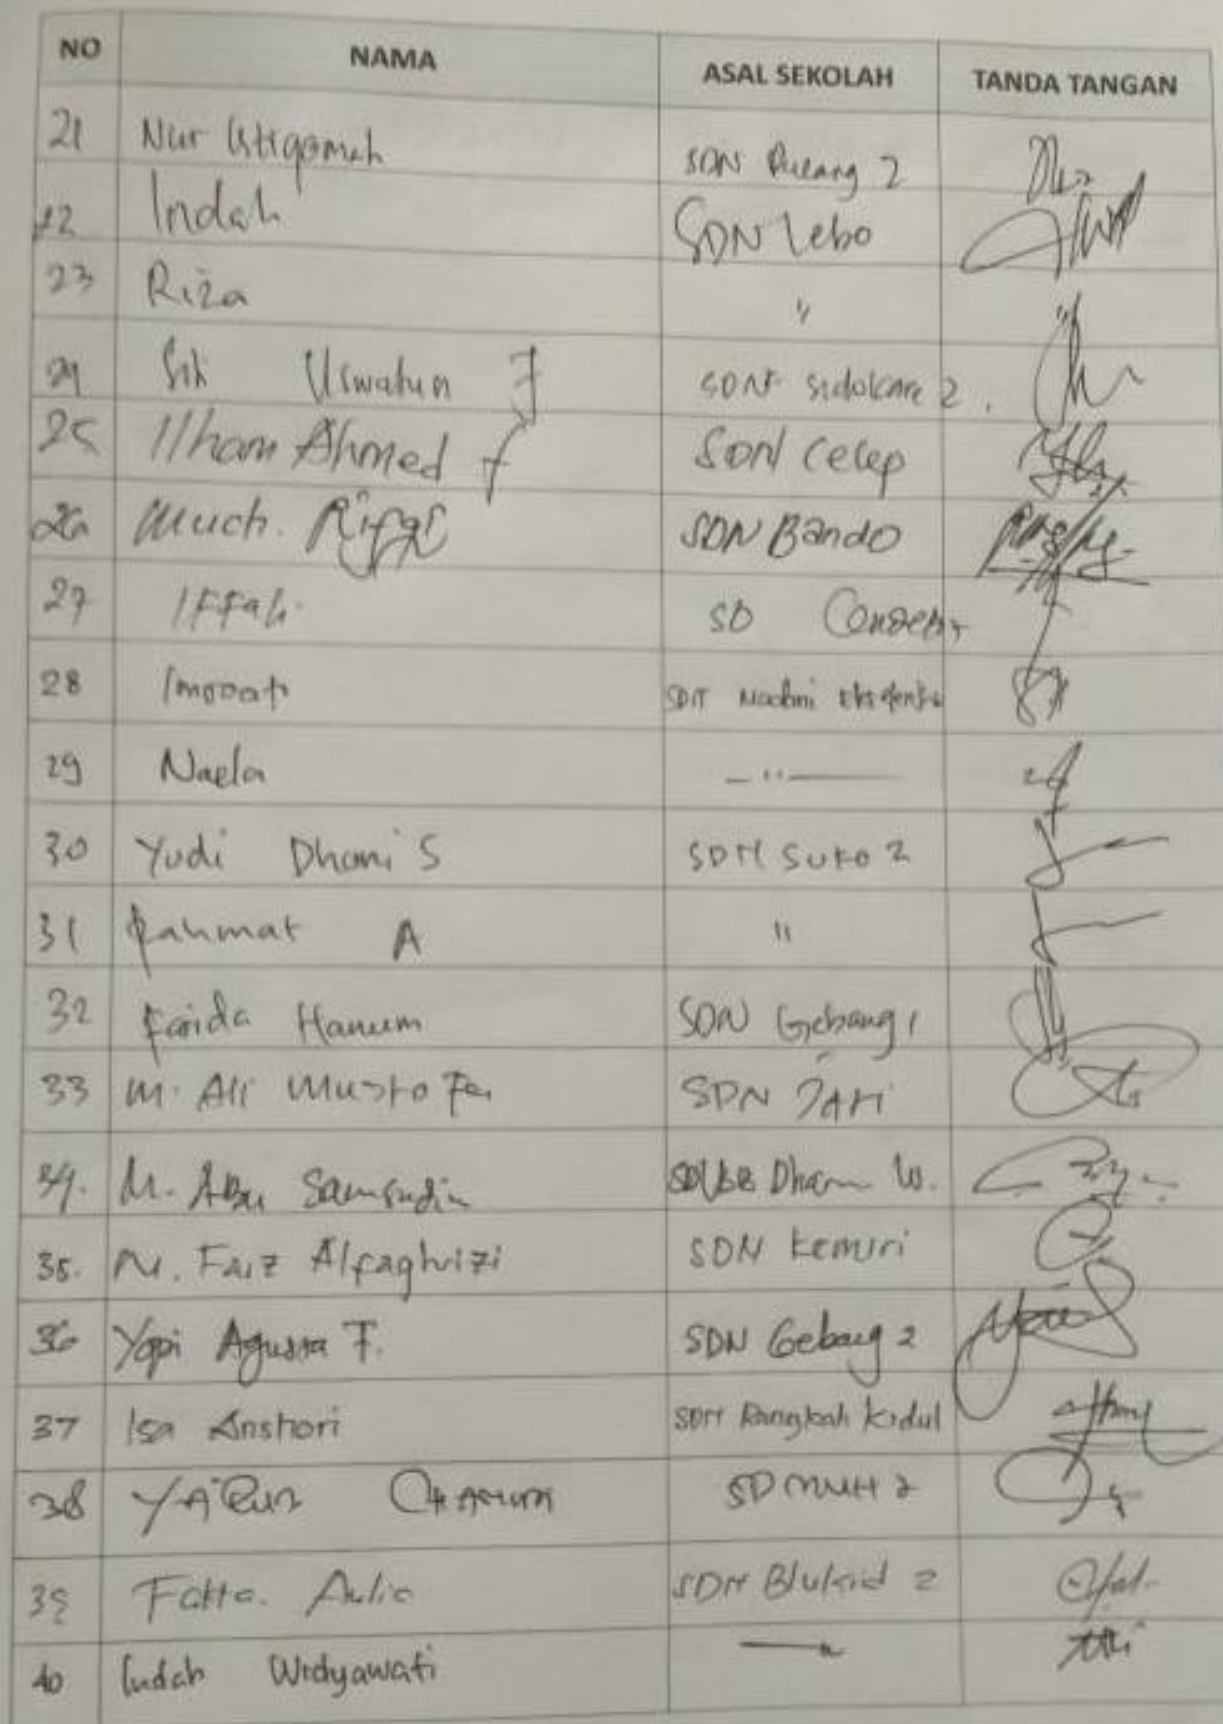 NO NAMA ASAL SEKOLAH TANDA TANGAN
21 Nur Istiqomah SDN Pucang 2
22 Indah SDN Lebo
23 Riza "
24 Siti Uswatun SDN Sidokare 2
25 Ilham Ahmed SDN Celep
26 Much. Rifqi SDN Bando
27 Iffah SD
28 SDIT
29 Naela — " —
30 Yudi Dhani S SDN Suko 2
31 Rahmat A "
32 Farida Hanum SDN Gebang 1
33 M. Ali Mustofa SDN Jati
34. M. Abu Samsudin Dharma W.
35. M. Faiz Alfaghrizi SDN Kemiri
36 Yopi Agusta F. SDN Gebang 2
37 Isa Anshori SDN Rangkah Kidul
38 SD MUH 2
39 Fatta. Aulia SDN Blukid 2
40 Indah Widyawati — "